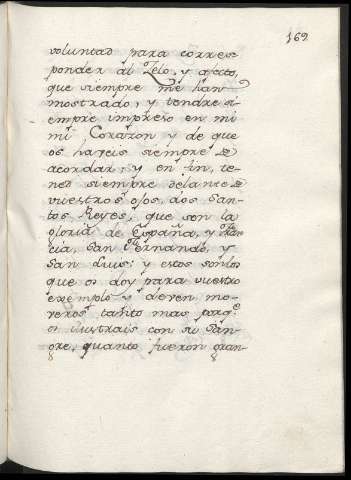 169
voluntad para corres
ponder al Zelo, y afecto,
que siempre me han
mostrado; y tendre si-
empre impreso en mi
mi Corazon y de que
os haveis siempre de
acordar; y en fin, te-
ned siempre delante de
vuestros ojos, dos San-
tos Reyes, que son la
gloria de España, y Fran
cia, San Fernando, y
San Luis: y estos son los
que os doy para vuestro
exemplo y deven mo-
veros tanto mas porq.e
os ilustrais con su San-
gre, quanto fueron gran-